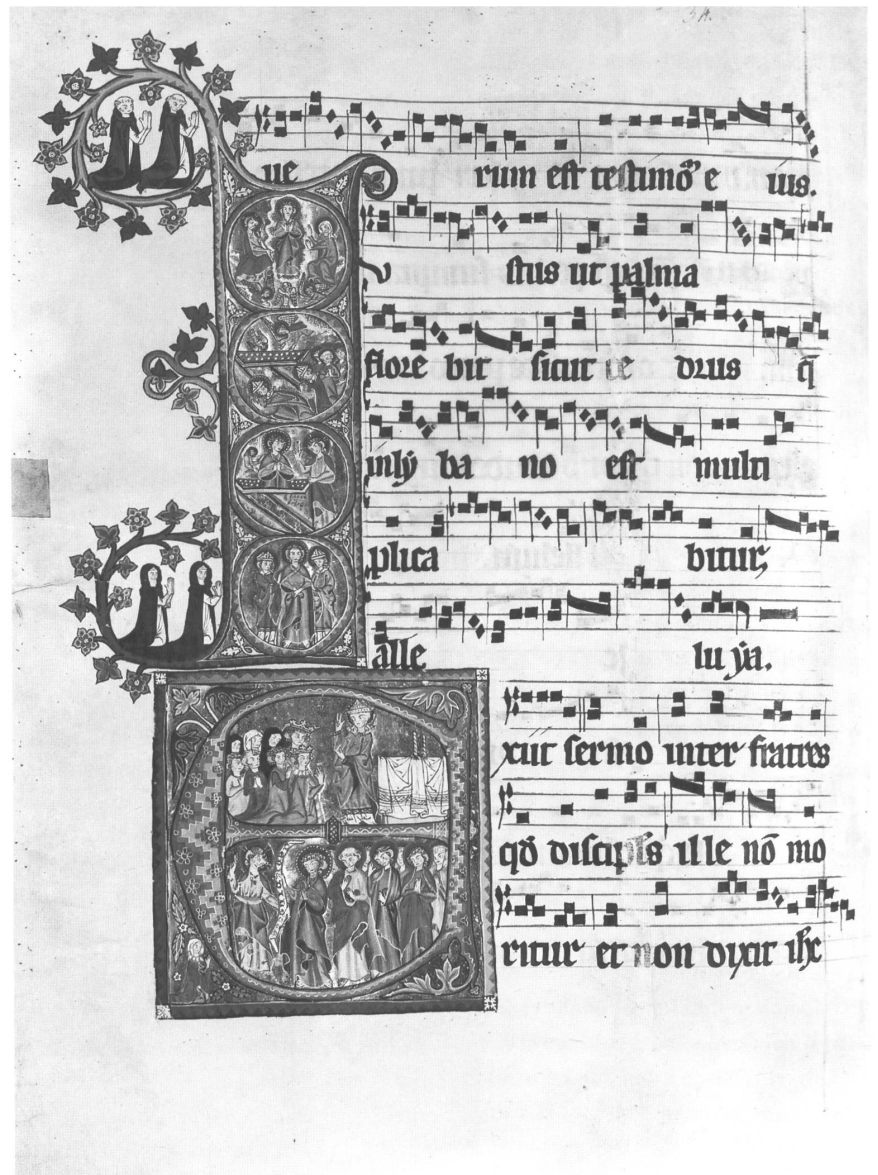 ue rum est testimo᷒ e ius.
stus ut palma
flore bit sicut ce drus q̄
in ly ba no est multi
plica bitur,
alle lu ya.
xiit sermo inter fratres
qd̄ discipl̄s ille nō mo
ritur et non dixit ihc